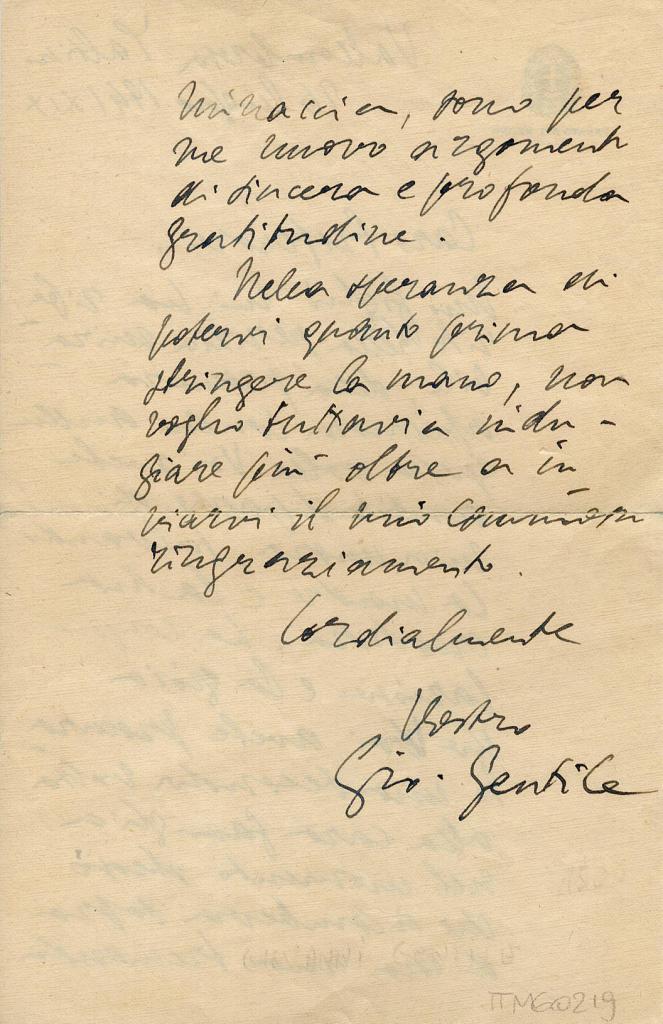 minaccia, sono per
me nuovo argomento
di sincera e profonda
gratitudine.
Nella speranza di
potervi quanto prima
stringere la mano, non
voglio tuttavia indu-
giare più oltre a in
viarvi il mio commosso
ringraziamento.
Cordialmente
Vostro
Gio. Gentile
ΠMG0219